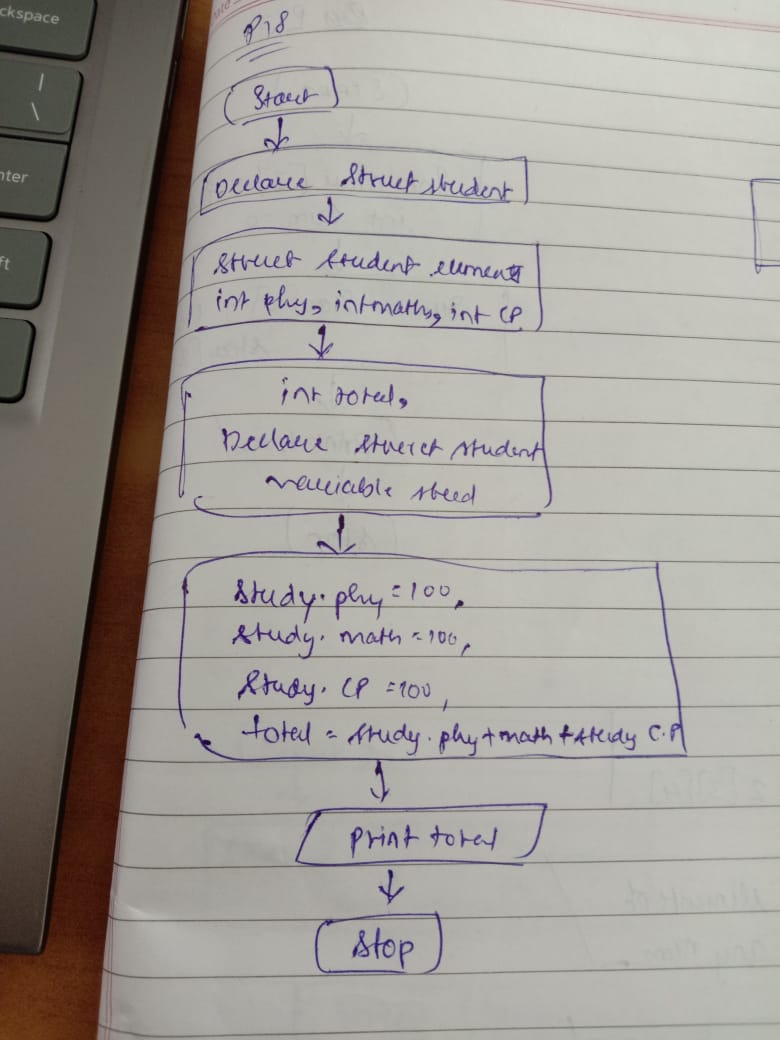 P18
Start
Declare Struct student
Struct student elements
int phy, int maths, int CP
int total,
Declare struct student
variable stud
Study. phy = 100,
Study. math = 100,
Study. CP = 100,
total = study. phy + math + study C.P
print total
Stop
ckspace
|
\
nter
ft